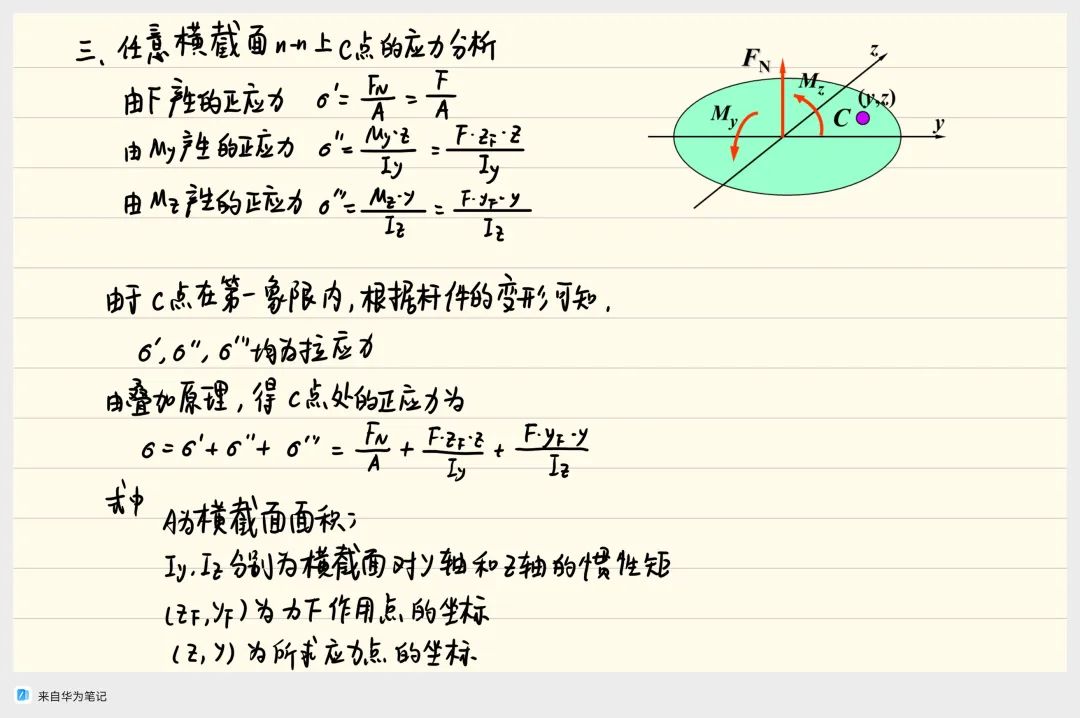 三、任意横截面n-n上C点的应力分析
由F产生的正应力 σ' = F_N/A = F/A
由My产生的正应力 σ'' = My·z/Iy = F·z_F·z/Iy
由Mz产生的正应力 σ''' = Mz·y/Iz = F·y_F·y/Iz
F_N
z
M_z
(y,z)
M_y
C
y
由于C点在第一象限内,根据杆件的变形可知,
σ', σ'', σ'''均为拉应力
由叠加原理,得C点处的正应力为
σ = σ' + σ'' + σ''' = F_N/A + F·z_F·z/Iy + F·y_F·y/Iz
式中
A为横截面面积;
Iy,Iz分别为横截面对y轴和z轴的惯性矩
(z_F,y_F)为力F作用点的坐标
(z,y)为所求应力点的坐标.
来自华为笔记